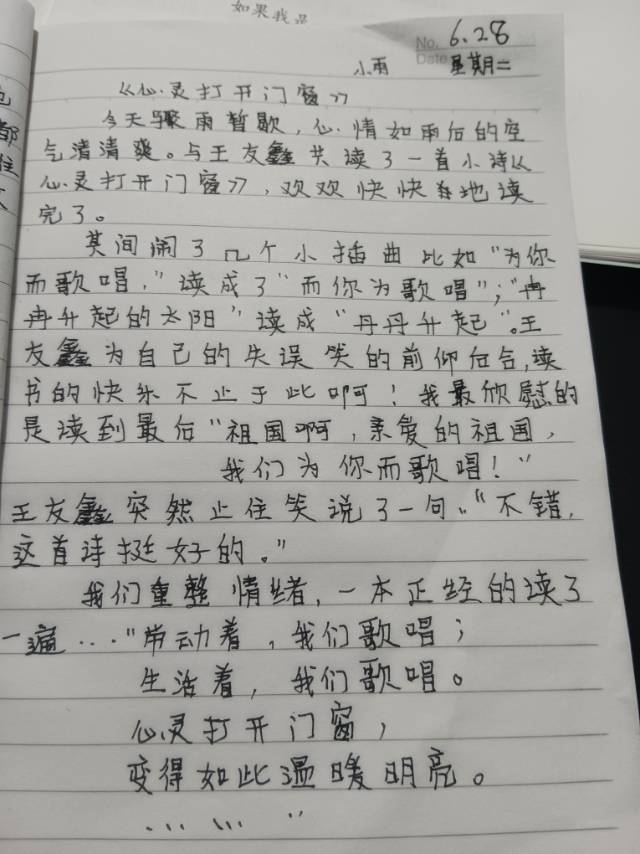 如果我是
No. 6.28
Date 星期二
小雨
《心灵打开门窗》
今天骤雨暂歇，心情如雨后的空
气清清爽。与王友鑫共读了一首小诗《
心灵打开门窗》，欢欢快快地读
完了。
其间闹了几个小插曲比如“为你
而歌唱，”读成了“而你为歌唱”；“冉
冉升起的太阳”读成“丹丹升起”。王
友鑫为自己的失误笑的前仰后合，读
书的快乐不止于此啊！我最欣慰的
是读到最后“祖国啊，亲爱的祖国，
我们为你而歌唱！”
王友鑫突然止住笑说了一句。“不错，
这首诗挺好的。”
我们重整情绪，一本正经的读了
一遍…“劳动着，我们歌唱；
生活着，我们歌唱。
心灵打开门窗，
变得如此温暖明亮。
……”